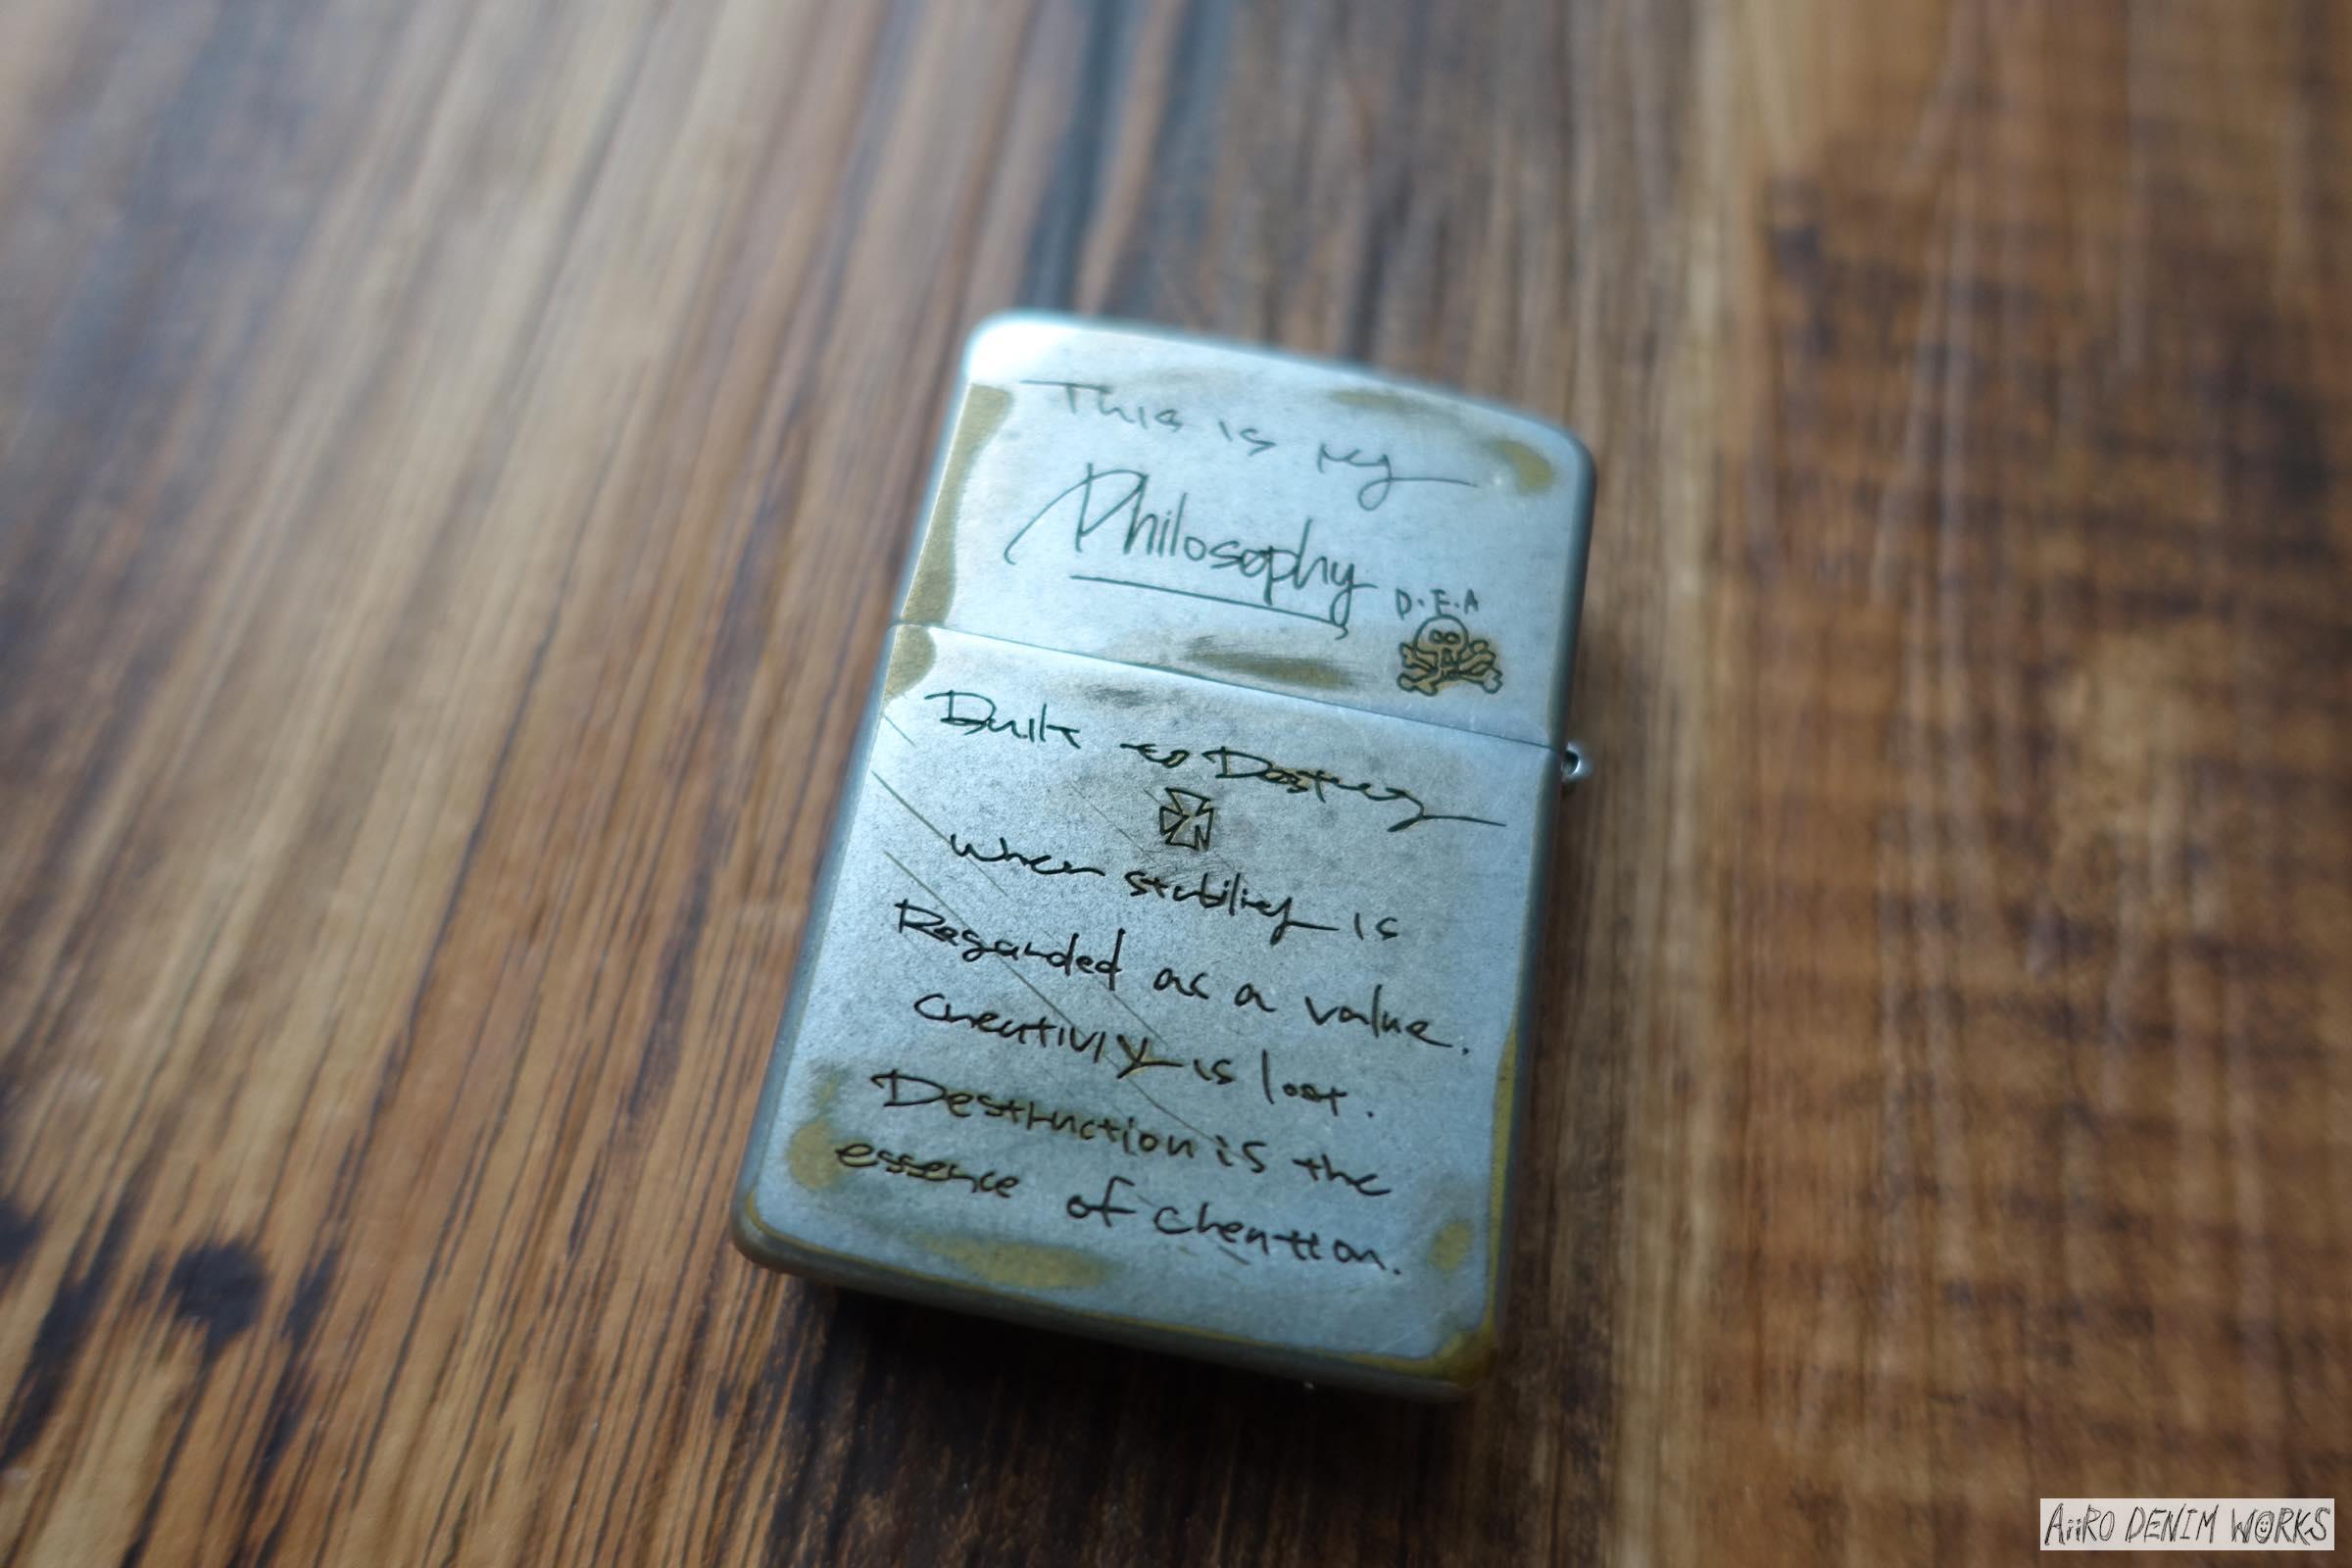 This is my
Philosophy
D.E.A
Built to Destroy
When stability is
Regarded as a value.
creativity is lost.
Destruction is the
essence of creation.
AiiRO DENIM WORKS